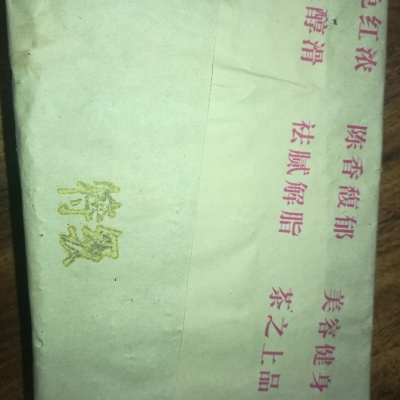 色红浓 陈香馥郁 美容健身
醇滑 祛腻解脂 茶之上品
特级